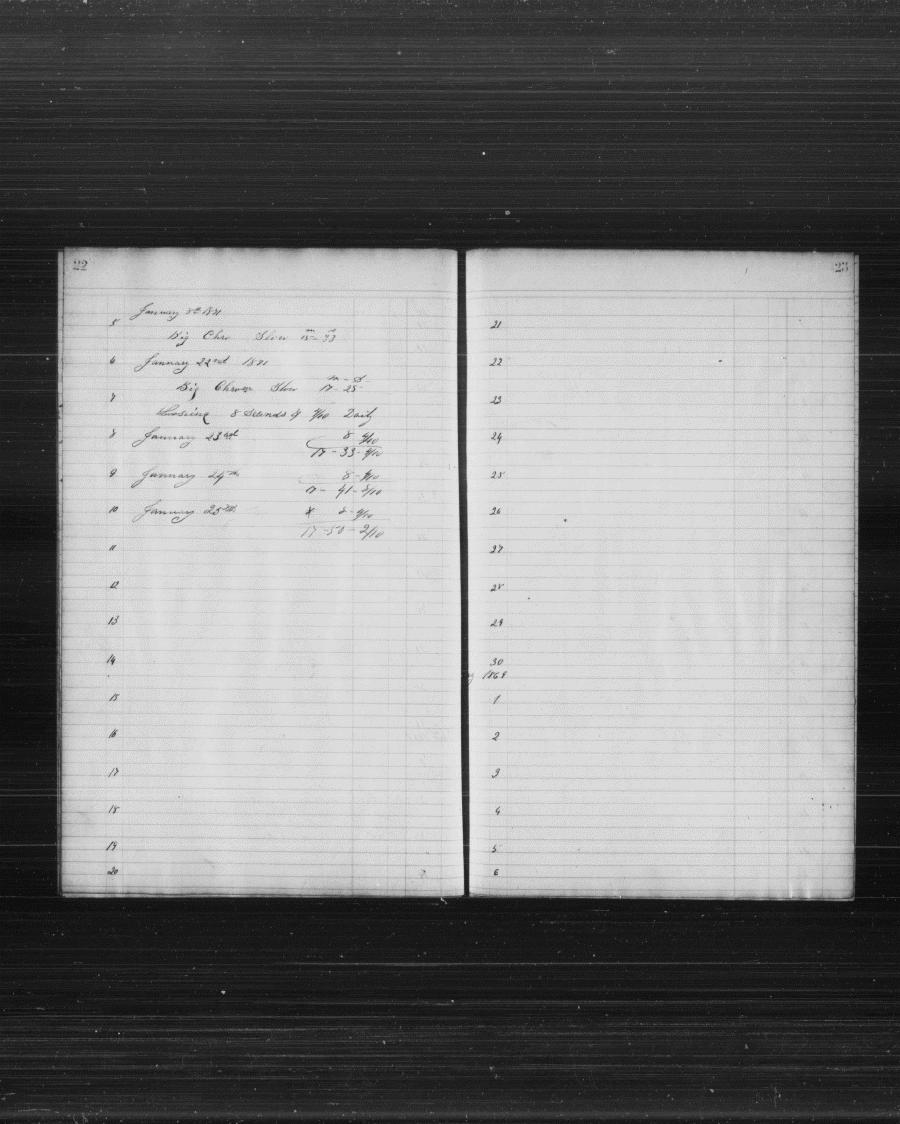 22
January 8th 1871
5
Big Chro Slow 15m 33s
6 January 22nd 1871
m - s
Big Chron Slow 17 - 25
7
Loosing 8 Seconds & 4/10 Daily
8 January 23rd 8 4/10
17 - 33 - 4/10
9 January 24th 8 - 4/10
17 - 41 - 8/10
10 January 25th 8 - 4/10
17 - 50 - 2/10
11
12
13
14
15
16
17
18
19
20
23
21
22
23
24
25
26
27
28
29
30
1868
1
2
3
4
5
6